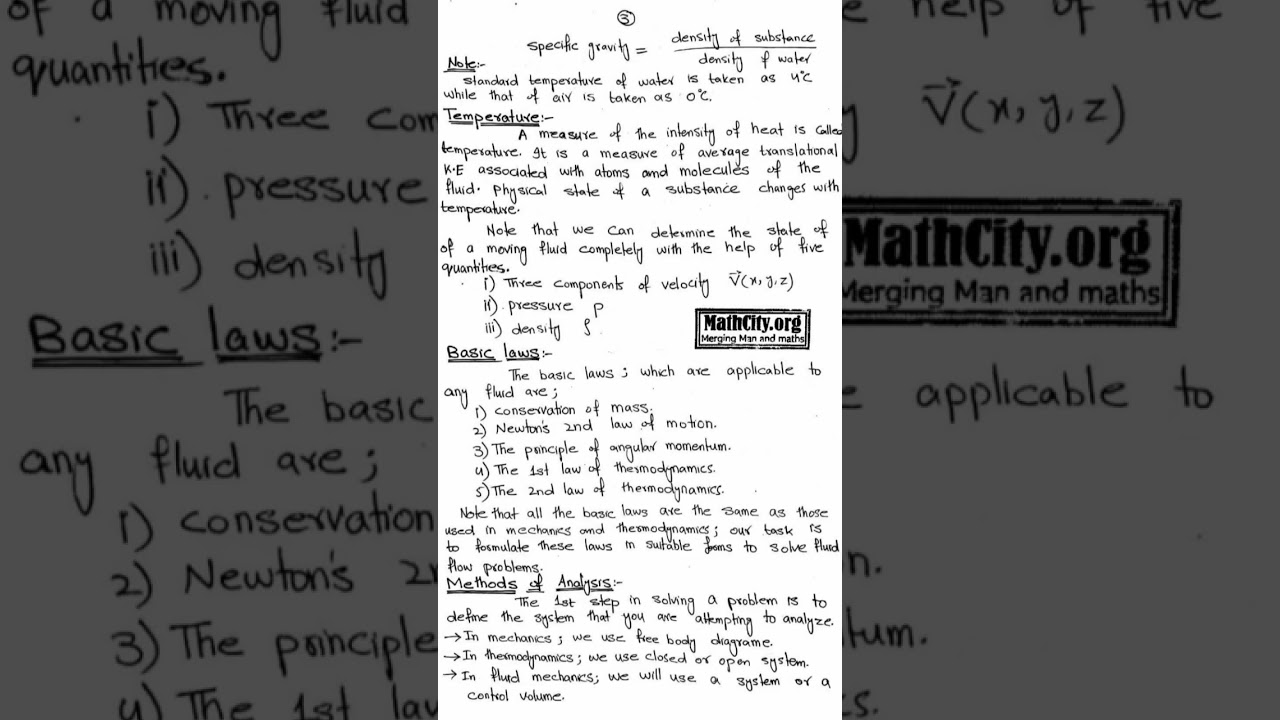 ③
specific gravity = density of substance / density of water
Note:-
standard temperature of water is taken as 4°C
while that of air is taken as 0°C.
Temperature:-
A measure of the intensity of heat is called
temperature. It is a measure of average translational
K.E associated with atoms and molecules of the
fluid. Physical state of a substance changes with
temperature.
Note that we can determine the state of
of a moving fluid completely with the help of five
quantities.
i) Three components of velocity V⃗(x,y,z)
ii) pressure p
iii) density ρ
MathCity.org
Merging Man and maths
Basic laws:-
The basic laws; which are applicable to
any fluid are;
1) conservation of mass.
2) Newton's 2nd law of motion.
3) The principle of angular momentum.
4) The 1st law of thermodynamics.
5) The 2nd law of thermodynamics.
Note that all the basic laws are the same as those
used in mechanics and thermodynamics; our task is
to formulate these laws in suitable forms to solve fluid
flow problems.
Methods of Analysis:-
The 1st step in solving a problem is to
define the system that you are attempting to analyze.
→ In mechanics; we use free body diagrame.
→ In thermodynamics; we use closed or open system.
→ In fluid mechanics; we will use a system or a
control volume.
of a moving fluid
quantities.
i) Three com
ii) pressure
iii) density
Basic laws:-
The basic
any fluid are;
1) conservation
2) Newton's 2n
3) The principle
4) The 1st law
e help of five
y V⃗(x,y,z)
MathCity.org
Merging Man and maths
e applicable to
n.
tum.
s.